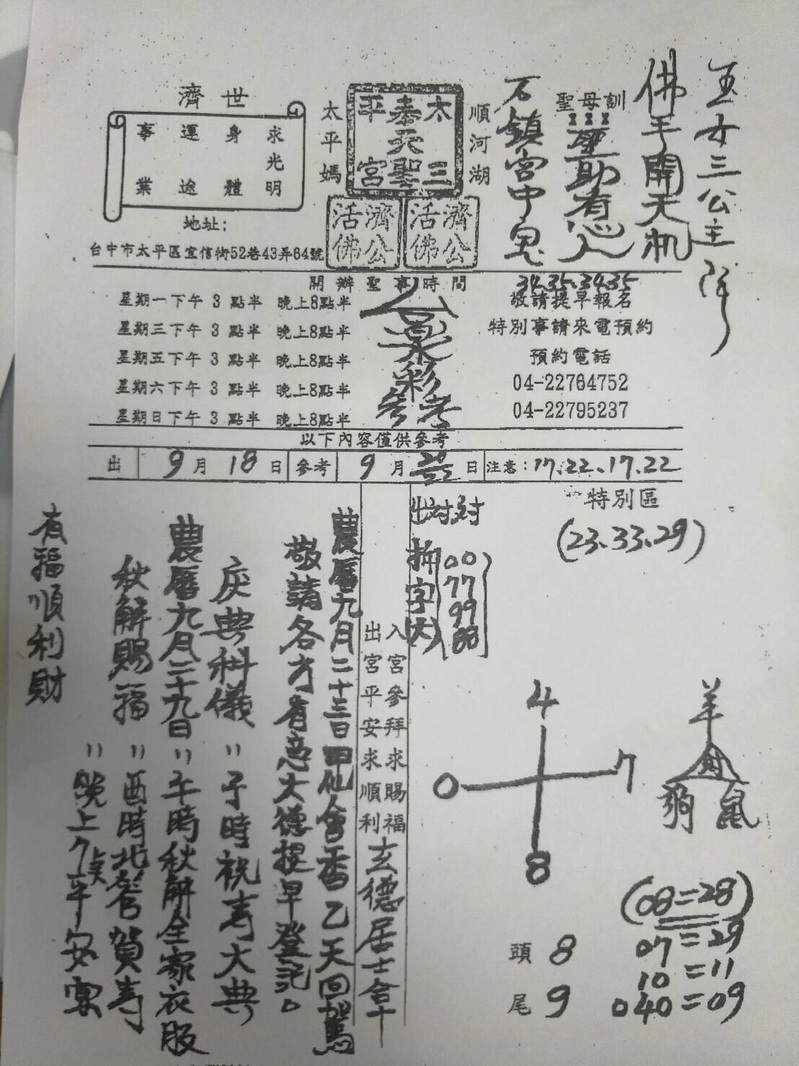 濟世
求光明
身體
運途
事業
地址：
台中市太平區宜信街52巷43弄64號
太平媽
太三
泰天聖
平宮
濟公活佛
濟公活佛
順河湖
聖母訓
玉女三公主降
佛手開天机
聖助有心人
石鎮宮中鬼
34.35.34.35
開辦聖事時間
星期一下午3點半 晚上8點半
星期三下午3點半 晚上8點半
星期五下午3點半 晚上8點半
星期六下午3點半 晚上8點半
星期日下午3點半 晚上8點半
彩
參考
敬請提早報名
特別事請來電預約
預約電話
04-22764752
04-22795237
以下內容僅供參考
出 9月18日 參考 9月 日 注意：17.22.17.22
特別區
(23.33.29)
出對對
00
77
99
88
4
0 7
8
羊
狗 鼠
(08=28)
07=29
10=11
040=09
頭 8
尾 9
入宮參拜求賜福
出宮平安求順利
玄德居士合十
農曆九月二十三日 會香乙天回駕
敬請各方有意大德提早登記。
慶典科儀 〃 子時祝壽大典
農曆九月二十九日 〃 午時秋解全家衣服
秋解賜福 〃 酉時北管賀壽
〃 晚上7點平安宴
有福順利財